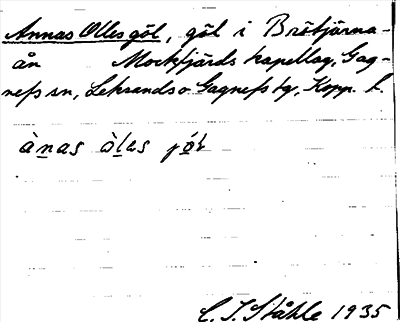 Annas Olles göl, göl i Brötjärna-
ån Mockfjärds kapellag, Gag-
nefs sn, Leksands o Gagnefs tg, Kopp. l.
ànas òlas jö́l
C. I. Ståhle 1935